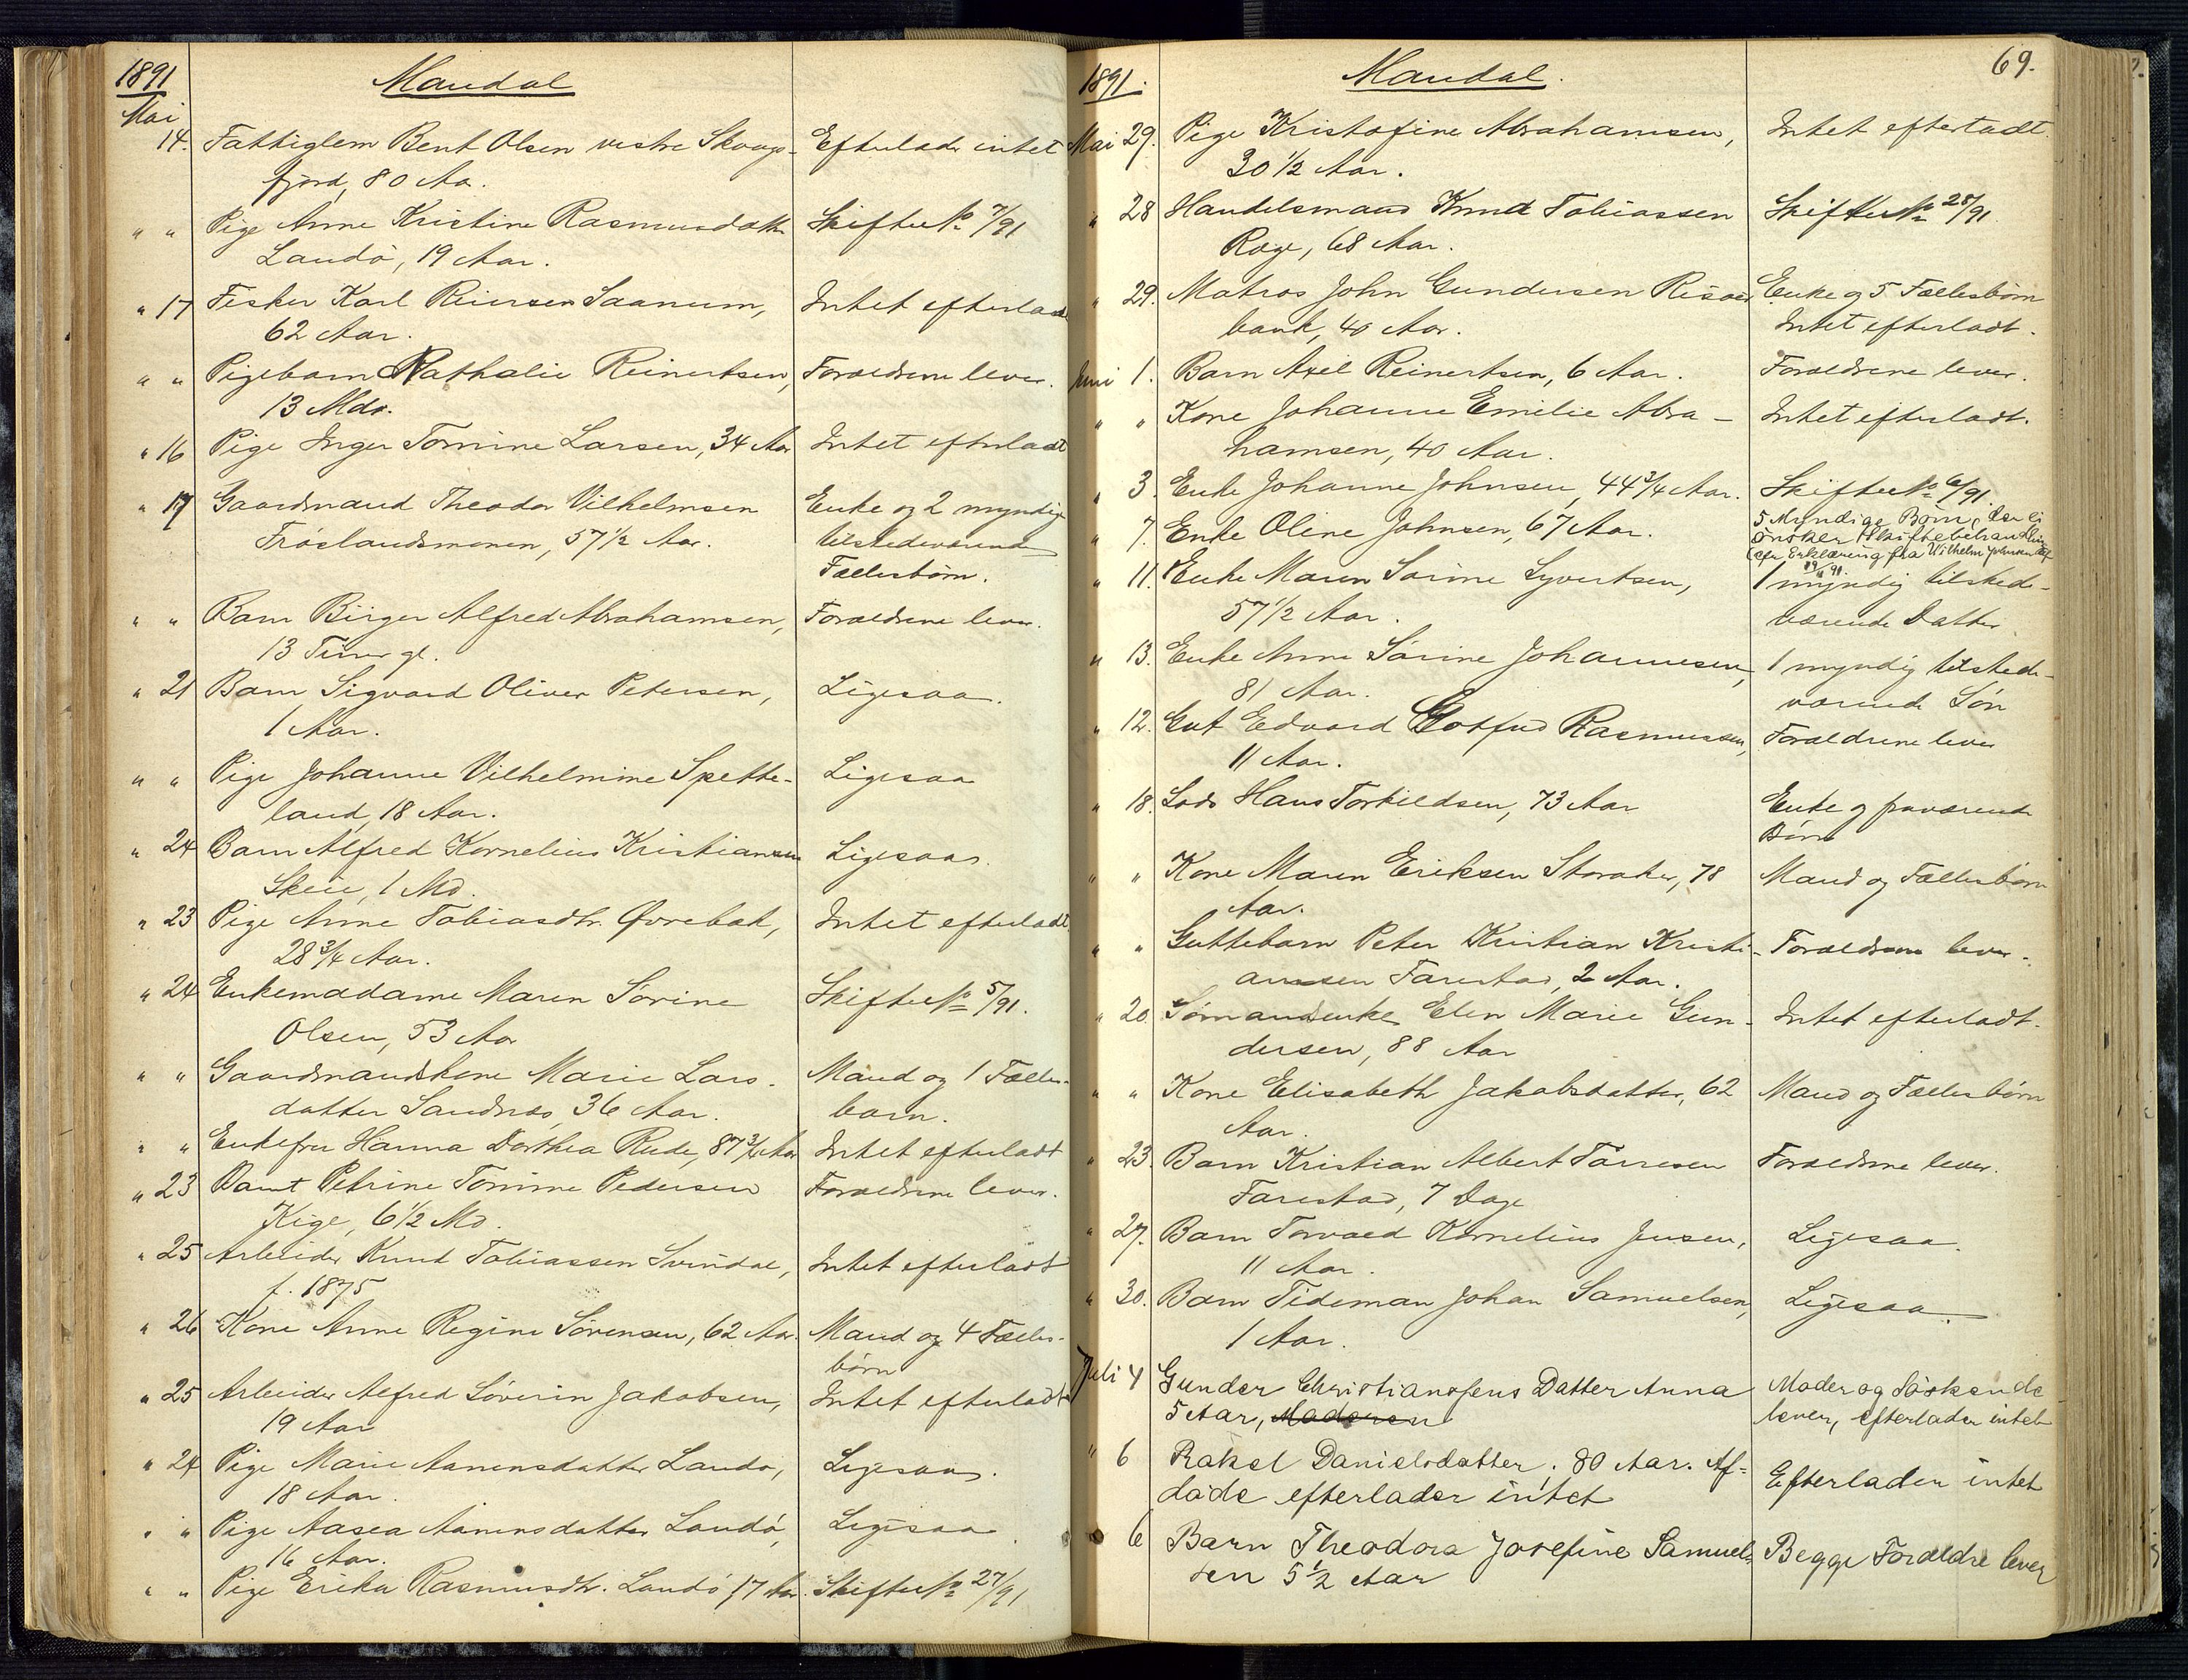 1891 Mandal
Mai
14. Fattiglem Bent Olsen vestre Skoogs- Efterlader intet
fjord, 80 Aa.
" " Pige Anne Kristine Rasmusdatter Skifte No 7/91
Landö, 19 Aar.
" 17 Fisker Karl Reiersen Saanum, Intet efterladt
62 Aar.
" " Pigebarn Nathalie Reinertsen, Forældrene lever.
13 Mdr.
" 16 Pige Inger Tomine Larsen, 34 Aar Intet efterladt
" 17 Gaardmand Theodor Vilhelmsen Enke og 2 myndige
Fröslandsmonen, 57 1/2 Aar. tilstedeværende
Fællesbörn.
" " Barn Birger Alfred Abrahamsen, Forældrene lever.
13 Timer gl.
" 21 Barn Sigvard Oliver Petersen, Ligesaa.
1 Aar.
" " Pige Johanne Vilhelmine Spette- Ligesaa
land, 18 Aar.
" 24 Barn Alfred Kornelius Kristiansen Ligesaa
Skeie, 1 Md.
" 23 Pige Anne Tobiasdtr. Øvrebak, Intet efterladt
28 3/4 Aar.
" 24 Enkemadame Maren Sörine Skifte No 5/91.
Olsen, 53 Aar
" " Gaardmandskone Marie Lars- Mand og 1 Fælles-
datter Sandnæs, 36 Aar. barn.
" " Enkefru Hanna Dorthea Rude, 87 3/4 Aar Intet efterladt
" 23 Barnt Petrine Tomine Pedersen Forældrene lever.
Kige, 6 1/2 Md.
" 25 Arbeider Knud Tobiassen Svindal, Intet efterladt
f. 1875
" 26 Kone Anne Regine Sörensen, 62 Aar. Mand og 4 Fælles-
börn
" 25 Arbeider Alfred Söverin Jakobsen, Intet efterladt
19 Aar
" 24 Pige Marie Aanensdatter Landö, Ligesaa.
18 Aar.
" " Pige Aasea Aanensdatter Landö, Ligesaa
16 Aar.
" " Pige Erika Rasmusdtr. Landö 17 Aar. Skifte No 27/91
1891. Mandal. 69.
Mai 29. Pige Kristofine Abrahamsen, Intet efterladt.
30 1/2 Aar.
" 28 Handelsmand Knud Tobiassen Skifte No 28/91.
Røge, 68 Aar.
" 29. Matros John Gundersen Risø- Enke og 5 Fællesbörn
bank, 40 Aar. Intet efterladt.
Juni 1. Barn Axel Reinertsen, 6 Aar. Forældrene lever.
" " Kone Johanne Emilie Abra- Intet efterladt.
hamsen, 40 Aar.
" 3. Enke Johanne Johnsen, 44 3/4 Aar. Skifte No 6/91.
" 7. Enke Oline Johnsen, 67 Aar. 5 Myndige Börn, der ei
önsker Skiftebehandling
(efr Erklæring fra Wilhelm Johnsen
" 11. Enke Maren Sörine Syvertsen, 1 myndig tilstede-
57 1/2 Aar. værende Datter
" 13. Enke Anne Sörine Johannesen, 1 myndig tilstede-
81 Aar. værende Sön
" 12. Gut Edvard Gotfred Rasmussen, Forældrene lever
11 Aar.
" 18. Lods Hans Torkildsen, 73 Aar Enke og fraværende
Börn
" " Kone Maren Eriksen Storaker, 78 Mand og Fællesbörn
Aar.
" " Guttebarn Peter Kristian Kristi- Forældrene lever.
ansen Farestad, 2 Aar.
" 20. Sömandsenke Elen Marie Gun- Intet efterladt.
dersen, 88 Aar
" " Kone Elisabeth Jakobsdatter, 62 Mand og Fællesbörn
Aar.
" 23. Barn Kristian Albert Törresen Forældrene lever.
Farestad, 7 Dage
" 27. Barn Torvald Kornelius Jensen, Ligesaa.
11 Aar.
" 30. Barn Tideman Johan Samuelsen, Ligesaa.
1 Aar.
Juli 4 Gunder Christiansens Datter Anna Moder og Söskende
5 Aar, Moderen lever, efterlader intet
" 6 Rakel Danielsdatter, 80 Aar. Af- Efterlader intet
döde efterlader intet
" 6 Barn Theodora Josefine Samuel- Begge Forældre lever
sen 5 1/2 Aar